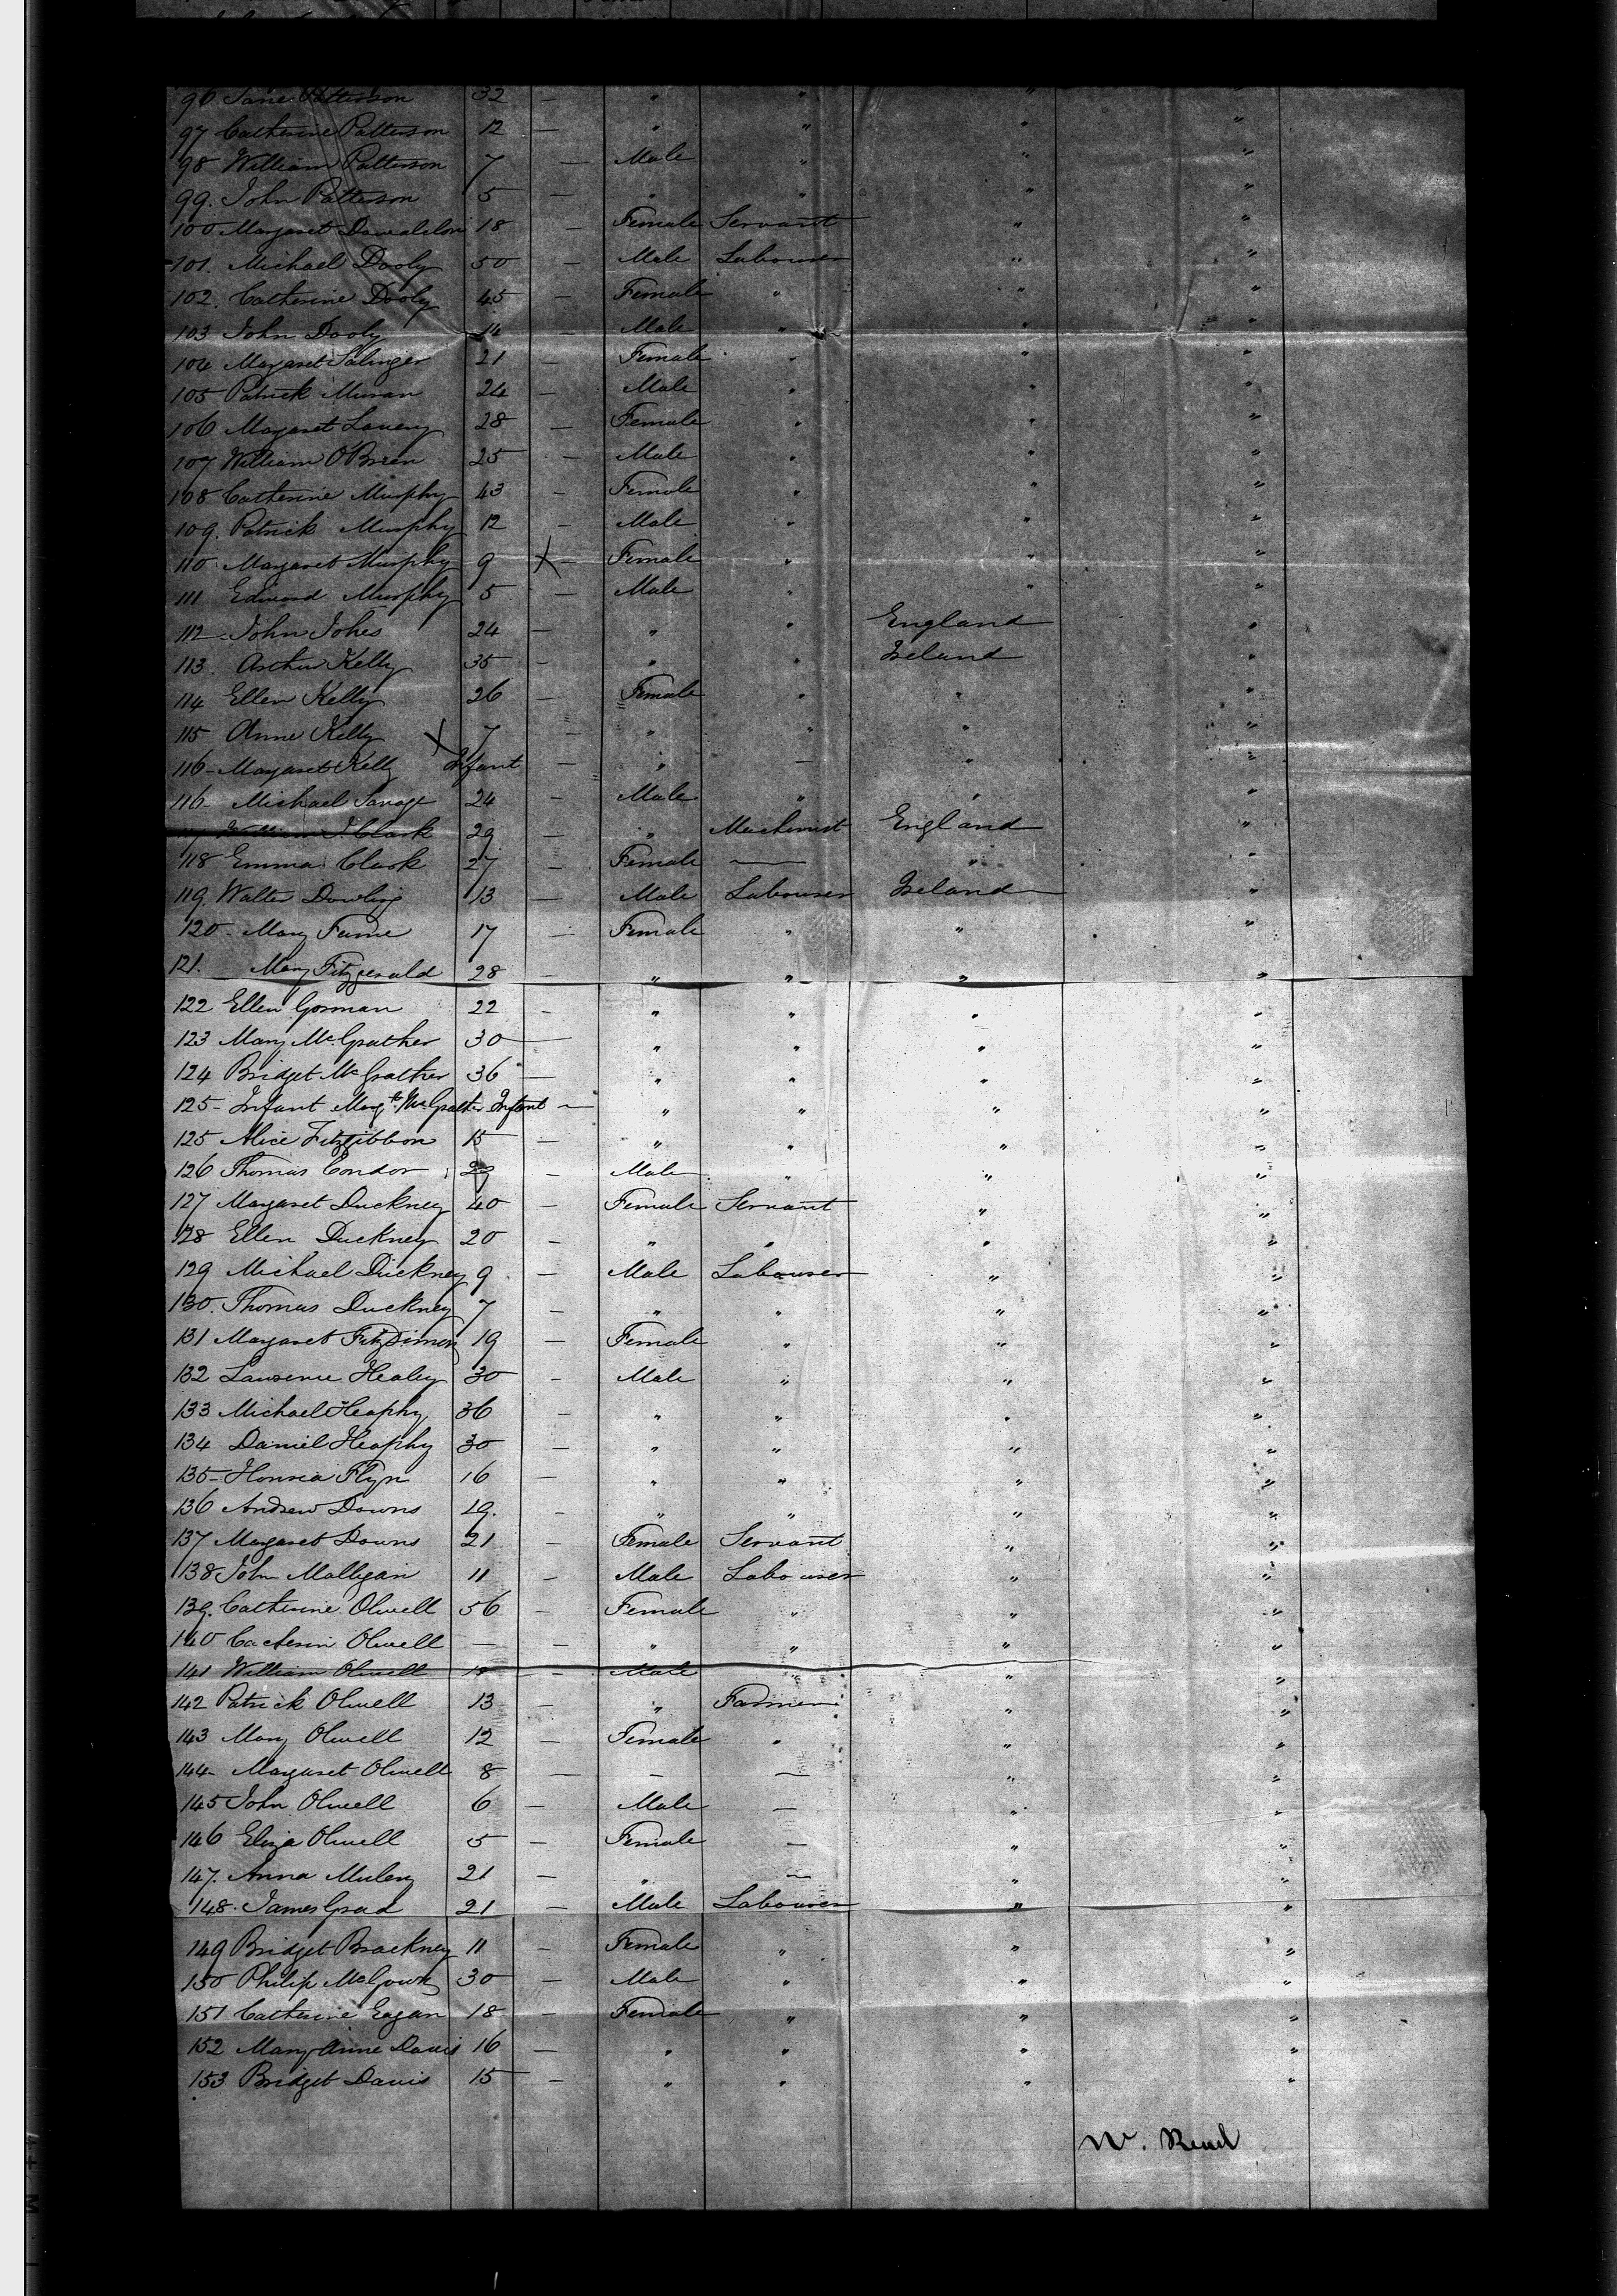 96 Jane Patterson 32 — " " " "
97 Catherine Patterson 12 — " " " "
98 William Patterson 7 — Male " " "
99. John Patterson 5 — " " " "
100 Margaret 18 — Female Servant " "
101. Michael Dooly 50 — Male Labourer " "
102. Catherine Dooly 45 — Female " " "
103 John Dooly 14 — Male " " "
104 Margaret Salinger 21 — Female " " "
105 Patrick Muran 24 — Male " " "
106 Margaret Lavery 28 — Female " " "
107 William O'Brien 25 — Male " " "
108 Catherine Murphy 43 — Female " " "
109. Patrick Murphy 12 — Male " " "
110 Margaret Murphy 9 X — Female " " "
111 Edward Murphy 5 — Male " " "
112 John Johes 24 — " " England "
113. Arthur Kelly 35 — " " Ireland "
114 Ellen Kelly 26 — Female " " "
115 Anne Kelly X 7 — " " " "
116 - Margaret Kelly Infant — " — " "
116 - Michael Savage 24 — Male " " "
William J Clark 29 — " Machinist England "
118 Emma Clark 27 — Female — " "
119. Walter Dowling 13 — Male Labourer Ireland "
120 - Mary Fame 17 — Female " " "
121. Mary Fitzgerald 28 — " " " "
122 Ellen Gorman 22 — " " " "
123 Mary McGrather 30 — " " " "
124 Bridget McGrather 36 — " " " "
125 - Infant Margt. McGrather Infant — " " " "
125 Alice Fitzgibbon 15 — " " " "
126 Thomas Condor — Male " " "
127 Margaret Duckney 40 — Female Servant " "
128 Ellen Duckney 20 — " " " "
129 Michael Duckney 9 — Male Labourer " "
130. Thomas Duckney 7 — " " " "
131 Margaret FitzSimon 19 — Female " " "
132 Lawrence Healey 30 — Male " " "
133 Michael Heaphy 36 — " " " "
134 Daniel Heaphy 30 — " " " "
135 - Honria Flyn 16 — " " " "
136 Andrew Downs 19. — " " " "
137 Margaret Downs 21 — Female Servant " "
138 John Malligan 11 — Male Labourer " "
139. Catherine Olwell 56 — Female " " "
140 Cacherin Olwell — — " " " "
141 William Olwell 18 — Male " " "
142 Patrick Olwell 13 — " Farmer " "
143 Mary Olwell 12 — Female " " "
144 - Margaret Olwell 8 — — — " "
145 John Olwell 6 — Male — " "
146 Eliza Olwell 5 — Female — " "
147. Anna Muleny 21 — " — " "
148. James Grad 21 — Male Labourer " "
149 Bridget Brackney 11 — Female " " "
150 Philip McGowk 30 — Male " " "
151 Catherine Eagan 18 — Female " " "
152 Mary Anne Davis 16 — " " " "
153 Bridget Davis 15 — " " " "
W. Read